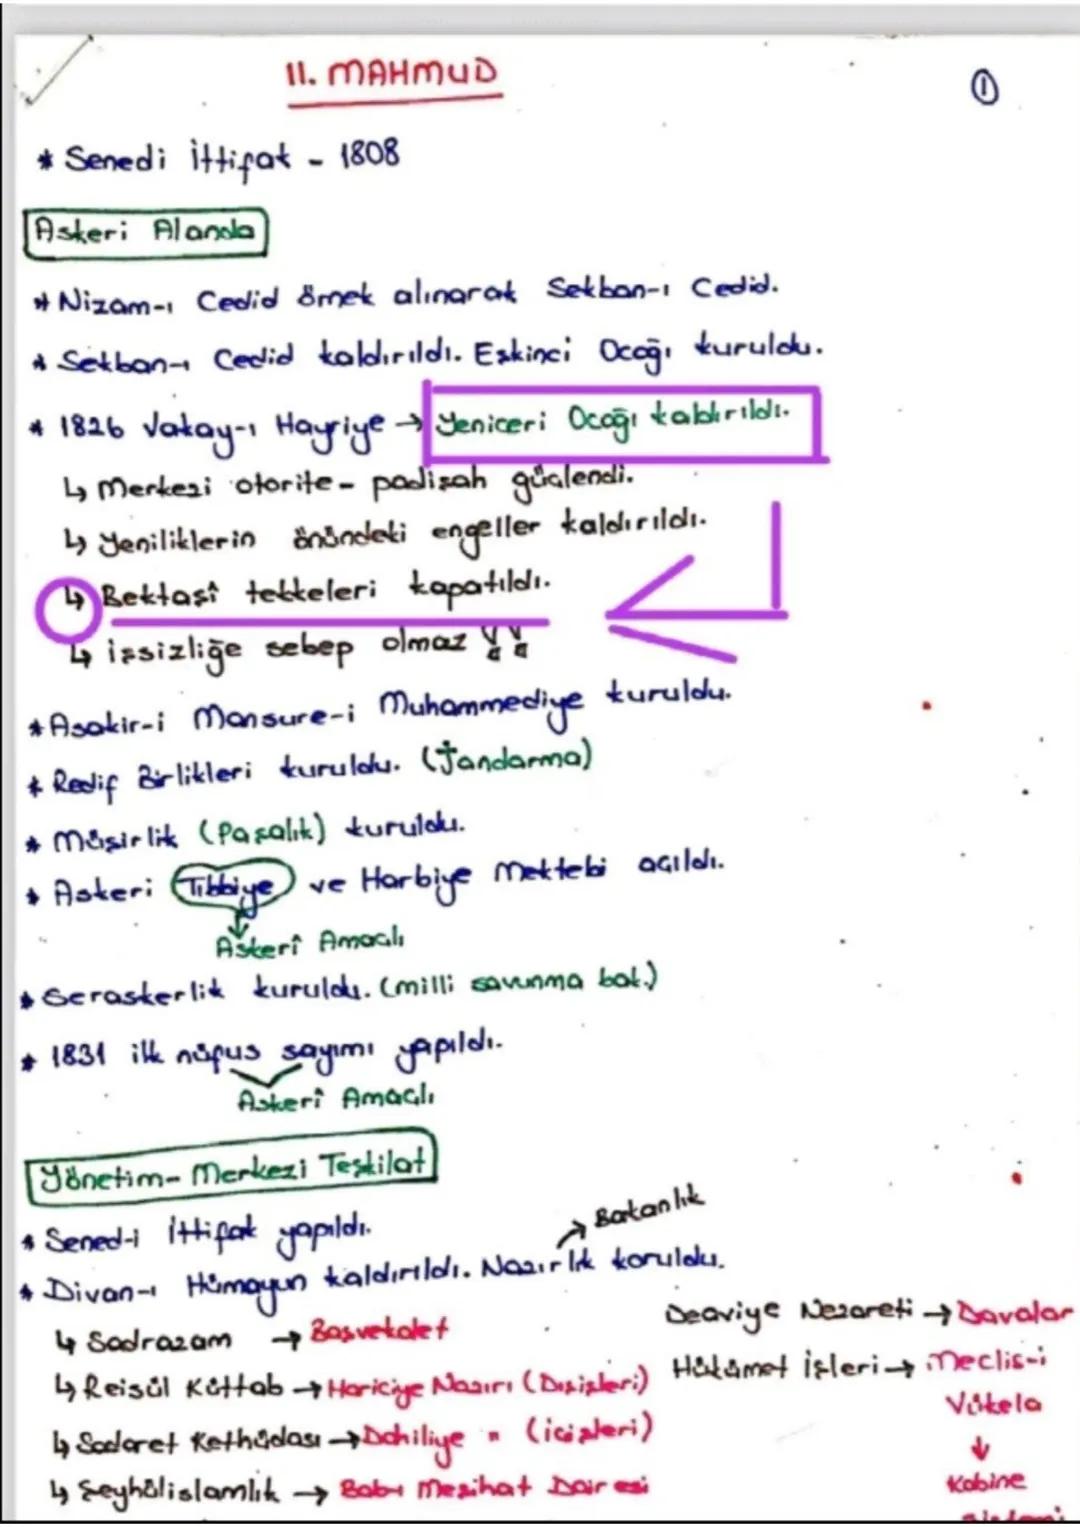 II. MAHMUD
①
* Senedi İttifak - 1808
Askeri Alanda
* Nizam-ı Cedid örnek alınarak Sekban-ı Cedid.
* Sekban-ı Cedid kaldırıldı. Eşkinci Ocağı kuruldu.
* 1826 Vakay-ı Hayriye → Yeniçeri Ocağı kaldırıldı.
↳ Merkezi otorite - padişah güçlendi.
↳ Yeniliklerin önündeki engeller kaldırıldı.
↳ Bektaşî tekkeleri kapatıldı.
↳ işsizliğe sebep olmaz !!
* Asakir-i Mansure-i Muhammediye kuruldu.
* Redif Birlikleri kuruldu. (Jandarma)
* Müşirlik (Paşalık) kuruldu.
* Askeri Tıbbiye ve Harbiye Mektebi açıldı.
Askerî Amaçlı
* Seraskerlik kuruldu. (milli savunma bak.)
* 1831 ilk nüfus sayımı yapıldı.
Askerî Amaçlı
Yönetim - Merkezi Teşkilat
* Sened-i İttifak yapıldı.
→ Bakanlık
* Divan-ı Hümayun kaldırıldı. Nazırlık kuruldu.
↳ Sadrazam → Başvekalet
↳ Reisül Küttab → Hariciye Nazırı (Dışişleri)
↳ Sadaret Kethüdası → Dahiliye " (içişleri)
↳ Şeyhülislamlık → Bab-ı Meşihat Dairesi
Deaviye Nezareti → Davalar
Hükümet İşleri → Meclis-i
Vükela
↓
Kabine